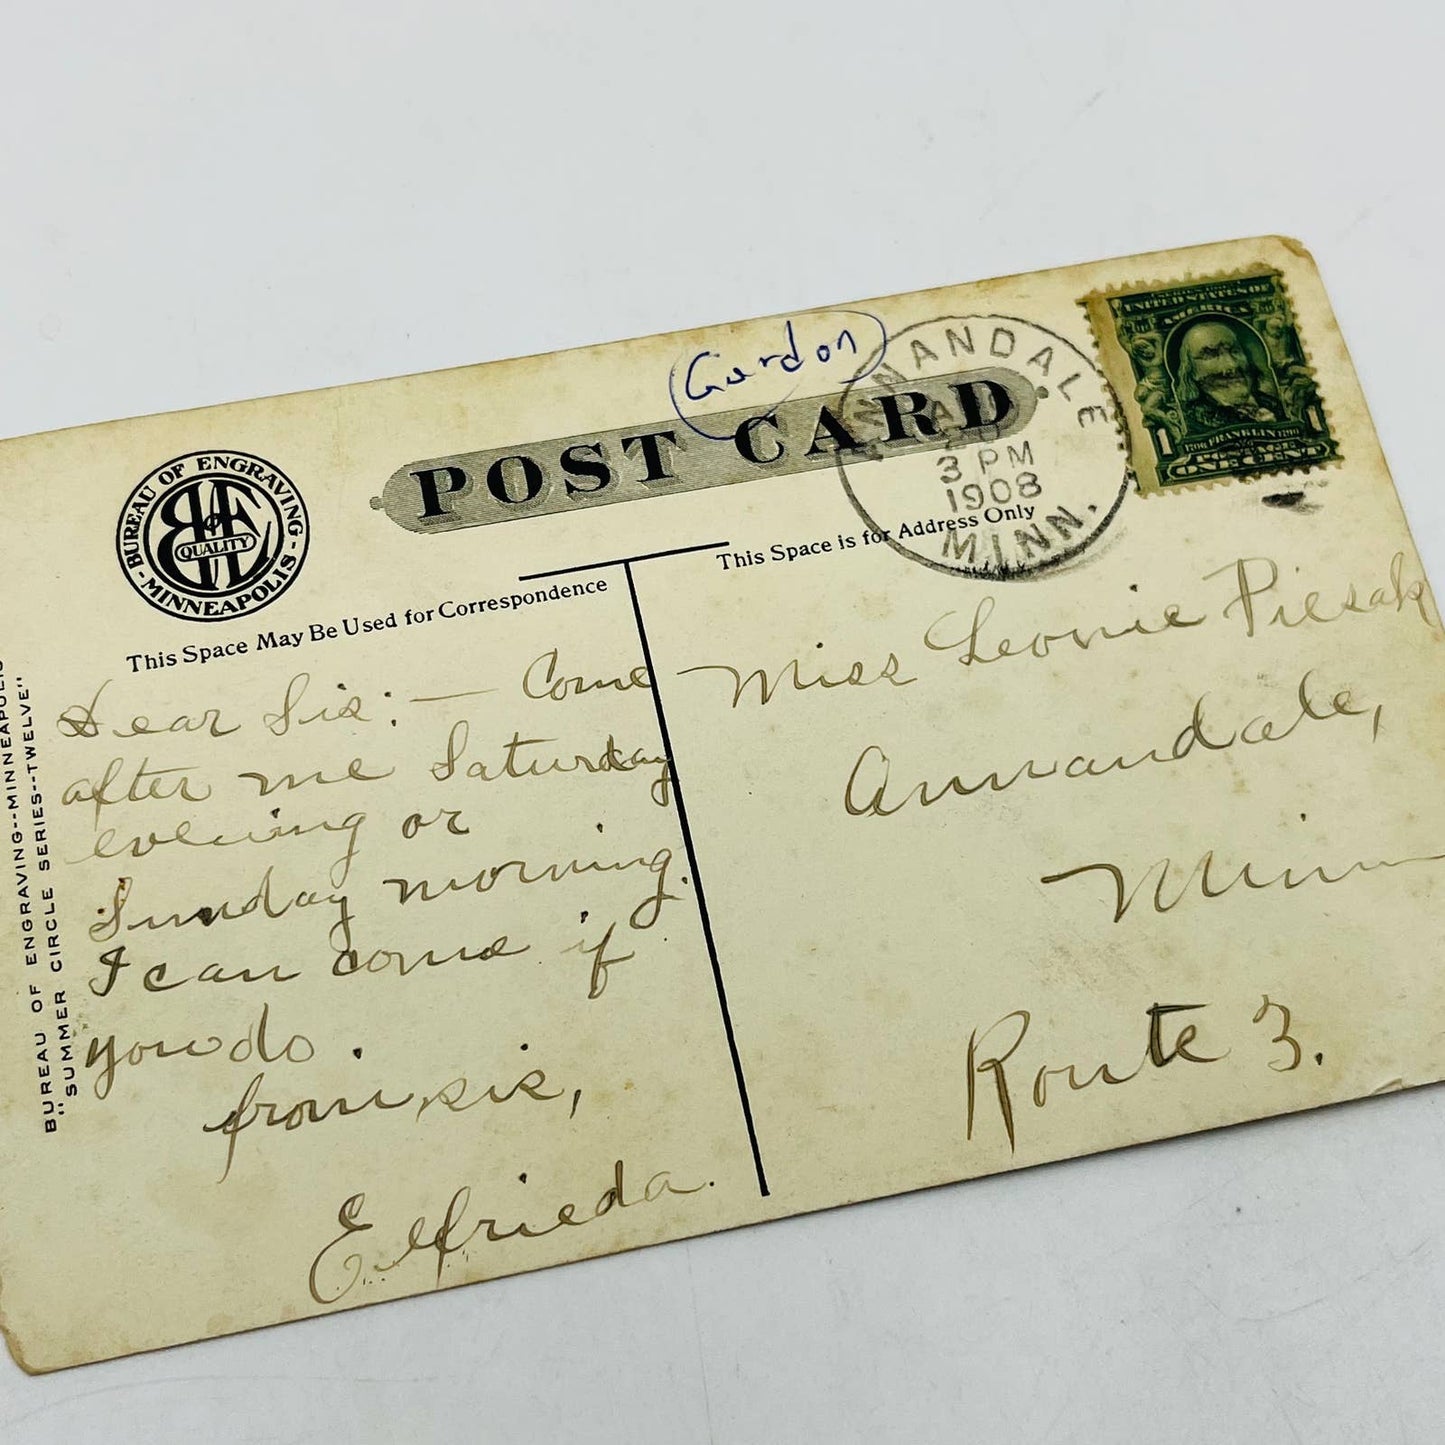 Gordon
POST CARD
ANNANDALE
3 PM
1908
MINN.
UNITED STATES OF
AMERICA
1706 FRANKLIN 1790
1 1
POSTAGE
ONE CENT
BUREAU OF ENGRAVING
B of E
QUALITY
MINNEAPOLIS
This Space May Be Used for Correspondence
This Space is for Address Only
BUREAU OF ENGRAVING--MINNEAPOLIS
"SUMMER CIRCLE SERIES--TWELVE"
Dear Sis: — Come
after me Saturday
evening or
Sunday morning.
I can come if
you do.
from, sis,
Elfrieda.
Miss Leonie
Annandale,
Minn
Route 3.